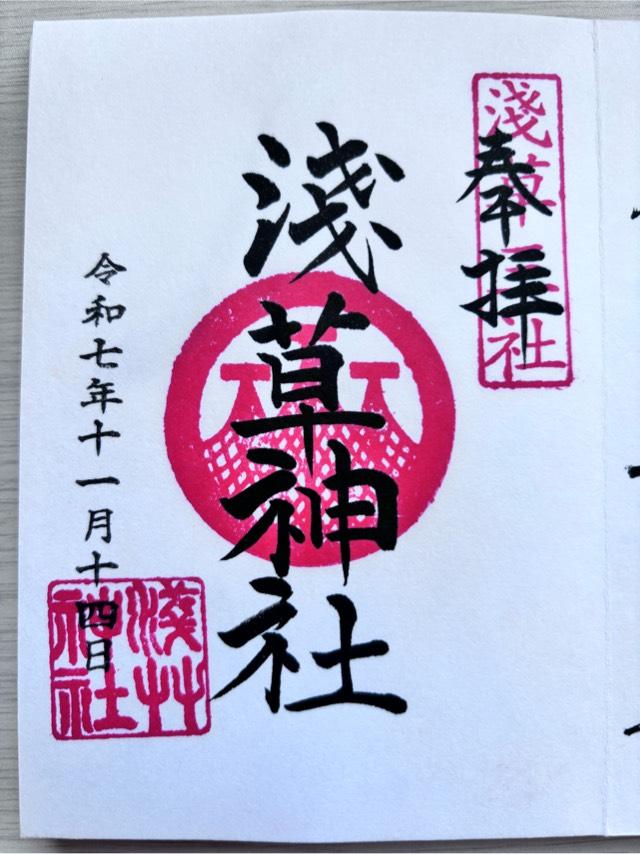 奉拝
淺草神社
淺草神社
令和七年十一月十四日
淺草神社